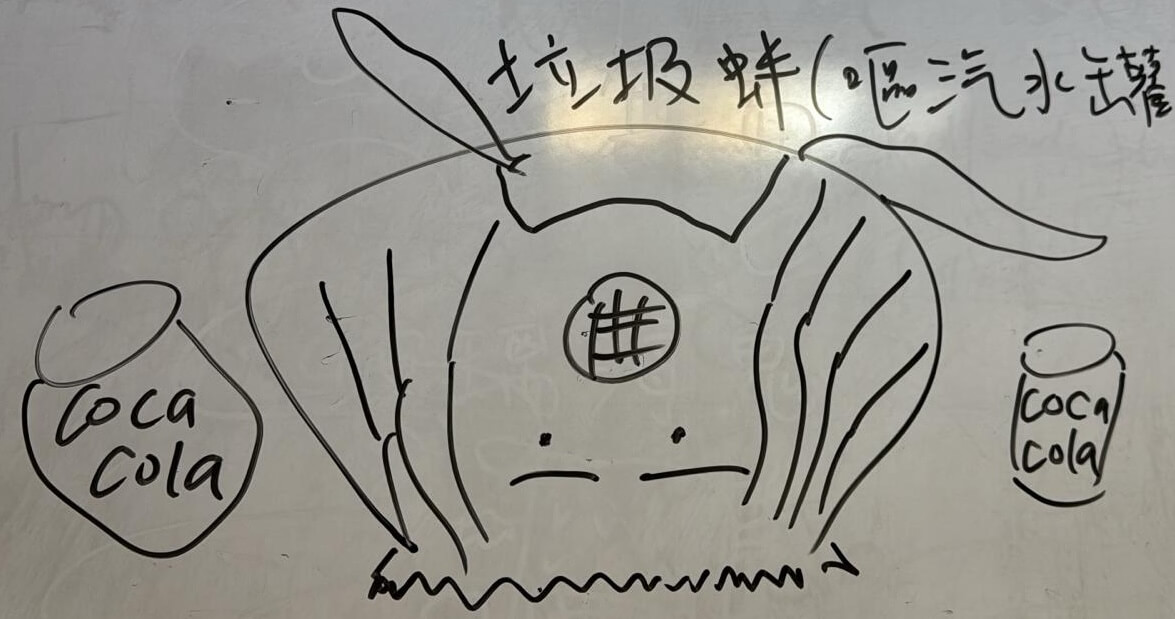 垃圾蚌(嘔汽水缶罐
coca
cola
coca
cola